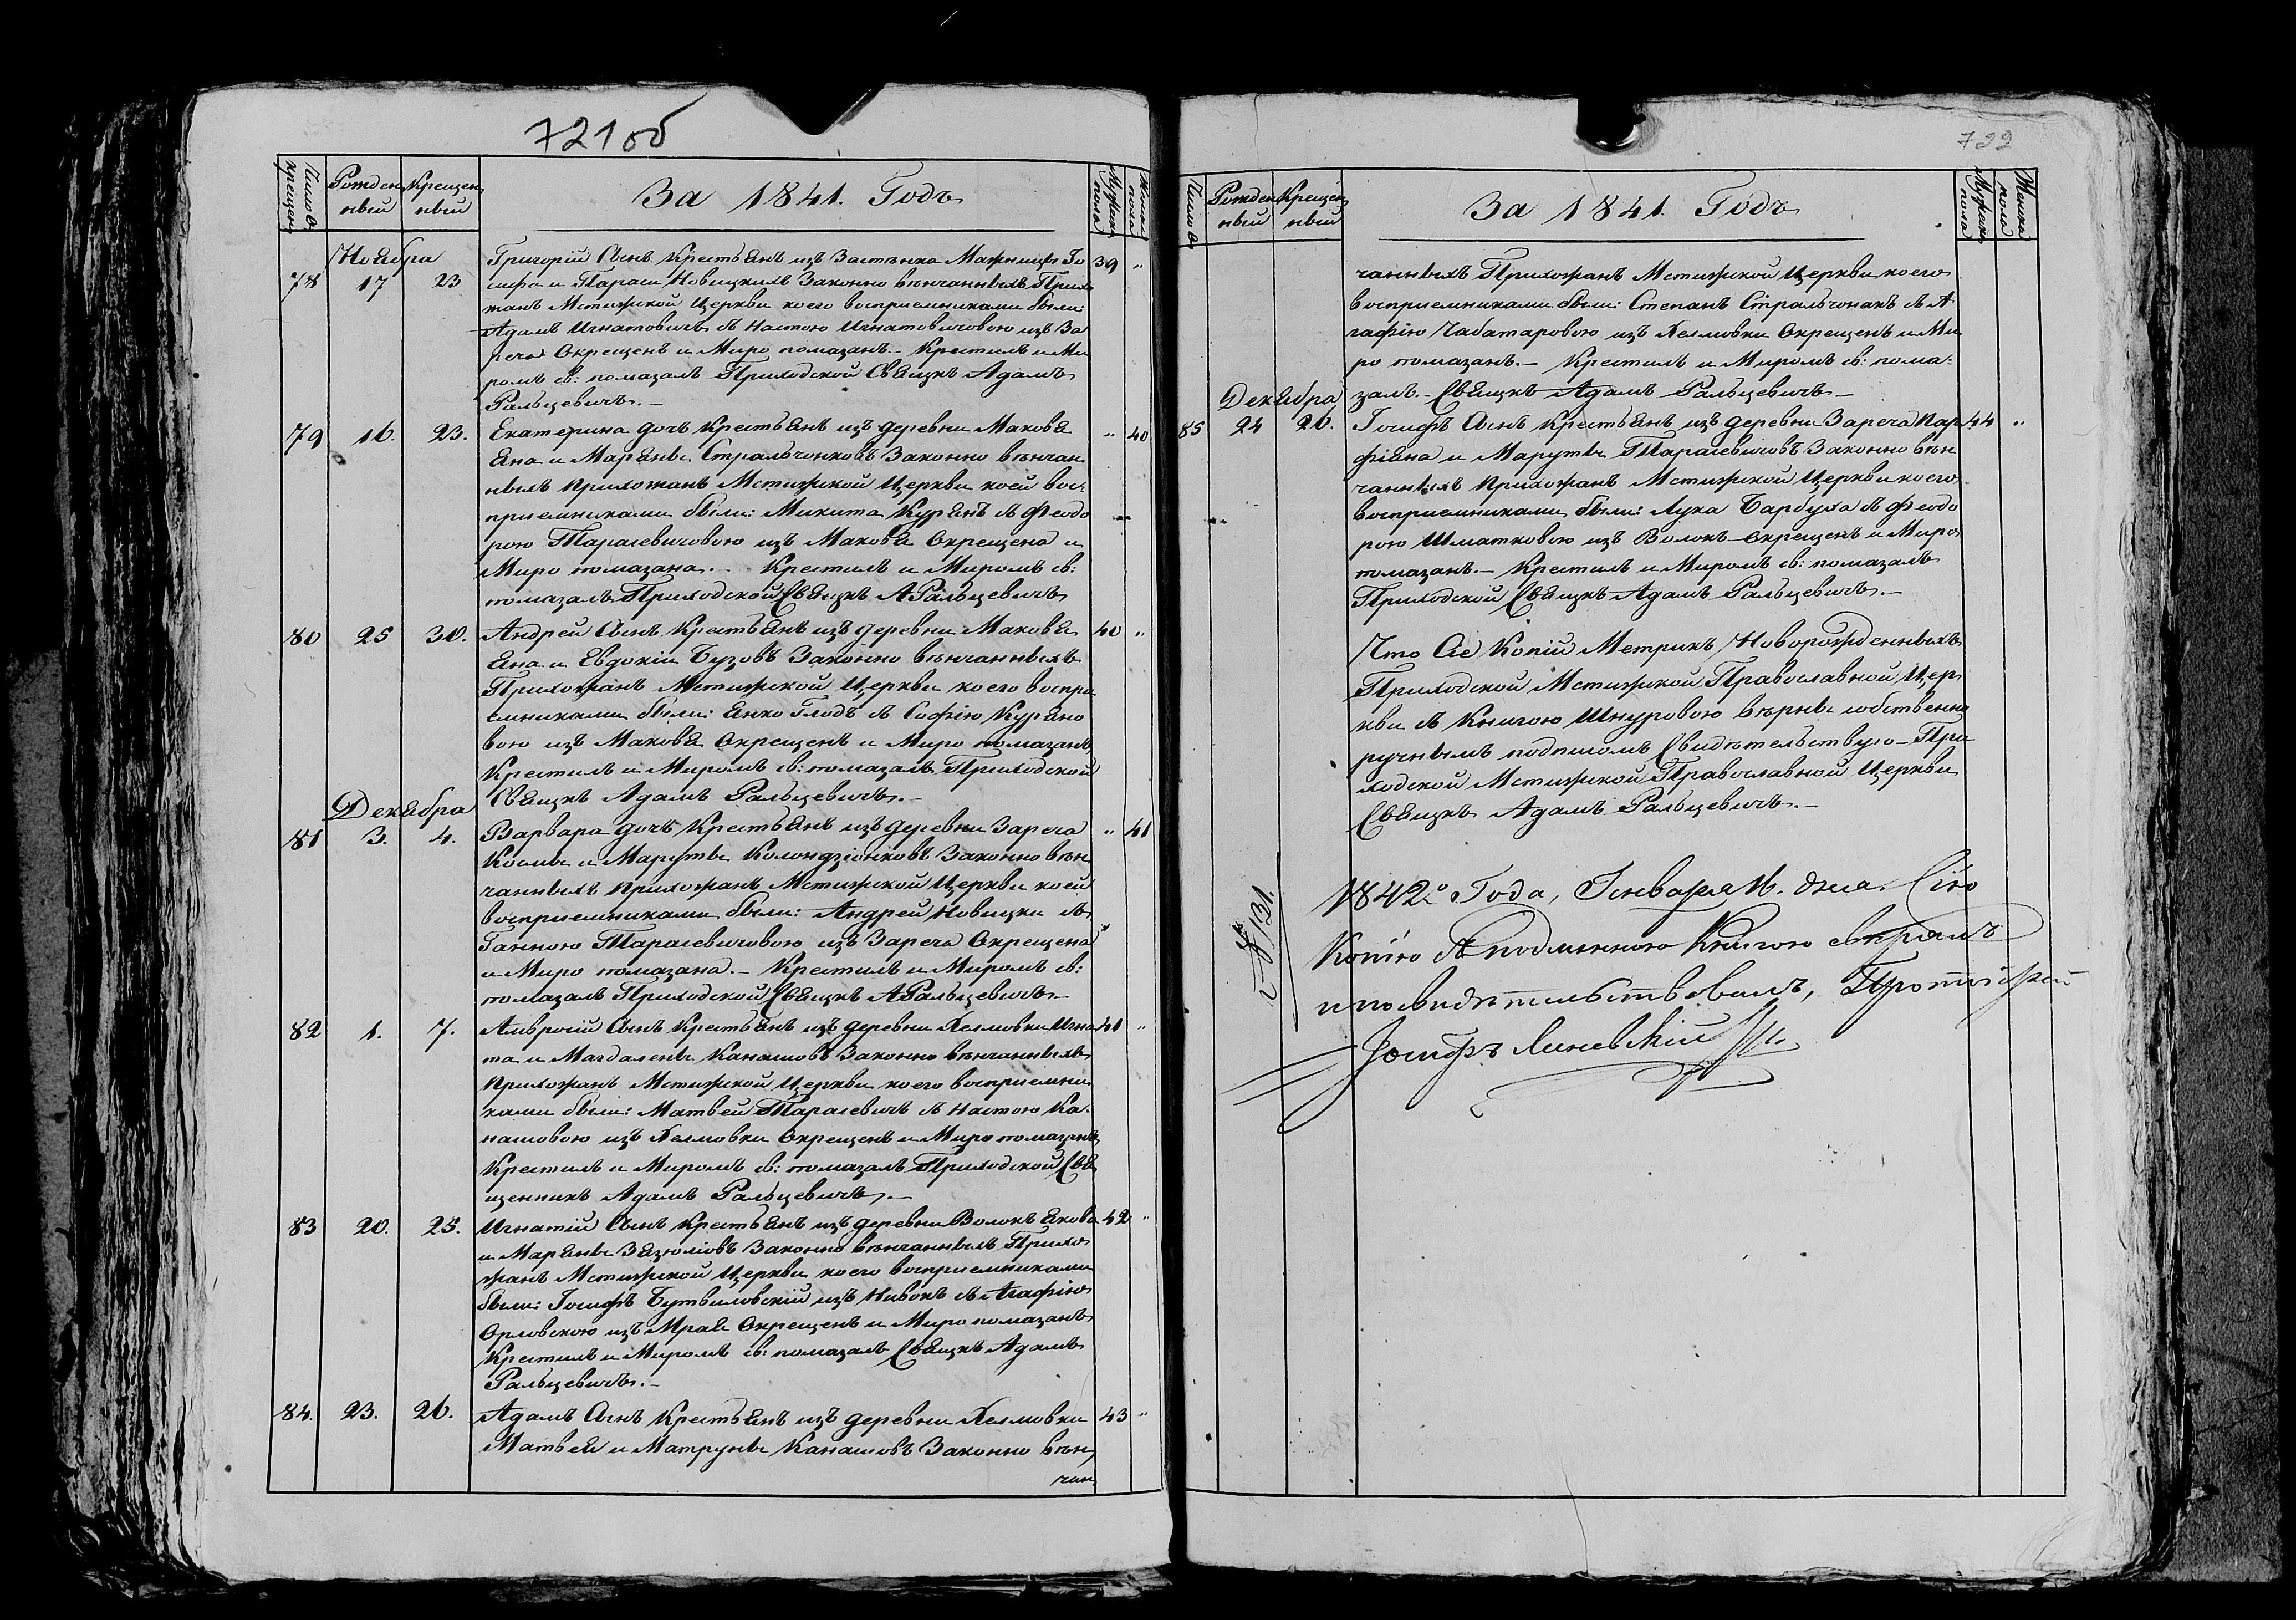 721 об
Число крещен.
Рожден
ный
Крещен
ный
За 1841. Годъ
Мужеска
пола
Женска
пола
Ноября
78 17 23 Григорій Сынъ Крестьянъ изъ Застѣнка Мажницы Іо 39 "
сифа и Параси Новицкихъ Законно вѣнчанныхъ Прихо
жанъ Мстижской Церкви коего воспріемниками были:
Адамъ Игнатовичъ съ Настою Игнатовичовою изъ За
реча Окрещенъ и Миро помазанъ.- Крестилъ и Ми
ромъ св: помазалъ Приходской Свящнкъ Адамъ
Ральцевичъ.-
79 16. 23. Екатерина дочь Крестьянъ изъ деревни Маковья " 40
Яна и Марьяны Стральчонковъ Законно вѣнчан
ныхъ прихожанъ Мстижской Церкви коей вос:
приемниками были: Микита Курянъ съ Феодо
рою Тарасевичовою изъ Маковья Окрещена и
Миро помазана.- Крестилъ и Миромъ св:
помазалъ Приходской Свящнкъ А Ральцевичъ
80 25 30. Андрей Сынъ Крестьянъ изъ деревни Маковья 40 "
Яна и Евдокіи Бузовъ Законно вѣнчанныхъ
Прихожанъ Мстижской Церкви коего воспри
емниками были: Янко Глодъ съ Софією Куряно
вою изъ Маковья Окрещенъ и Миро помазанъ
Крестилъ и Миромъ св: помазалъ Приходской
Свящнкъ Адамъ Ральцевичъ.-
Декабря
81 3. 4. Варвара дочь Крестьянъ изъ деревни Зареча " 41
Косьмы и Маруты Колондзіонковъ Законно вѣн
чанныхъ прихожанъ Мстижской Церкви коей
восприемниками были: Андрей Новицки съ
Ганною Тарасевичовою изъ Зареча Окрещена
и Миро помазана.- Крестилъ и Миромъ св:
помазалъ Приходской Свящнкъ А Ральцевичъ
82 1. 7. Амвросій Сынъ Крестьянъ изъ деревни Хелмовки Игна 41 "
та и Магдалены Канашовъ Законно вѣнчанныхъ
прихожанъ Мстижской Церкви коего восприемни
ками были: Матвей Тарасевичъ съ Настою Ка
нашовою изъ Хелмовки Окрещенъ и Миро помазанъ
Крестилъ и Миромъ св: помазалъ Приходской Свя
щенникъ Адамъ Ральцевичъ.-
83 20. 25. Игнатій Сынъ Крестьянъ изъ деревни Волокъ Якова 42 "
и Марьяны Зязюліовъ Законно вѣнчанныхъ Прихо
жанъ Мстижской Церкви коего восприемниками
были: Іосифъ Бутвиловскій изъ Нивокъ съ Агафією
Орловскою изъ Мрая Окрещенъ и Миро помазанъ
Крестилъ и Миромъ св: помазалъ Свящнкъ Адамъ
Ральцевичъ.-
84. 23. 26. Адамъ Сынъ Крестьянъ изъ деревни Хелмовки 43 "
Матвея и Матруны Канашовъ Законно вѣн
чан
722
Число
Рожден
ный
Крещен
ный
За 1841. Годъ
Мужеска
пола
Женска
пола
чанныхъ Прихожанъ Мстижской Церкви коего
восприемниками были: Степанъ Стральчонакъ съ А
гафією Чабатаровою изъ Хелмовки Окрещенъ и Ми
ро помазанъ.- Крестилъ и Миромъ св: пома:
залъ.- Свящнкъ Адамъ Ральцевичъ-
Декабря
85 24 26. Іосифъ Сынъ Крестьянъ изъ деревни Зареча Пар 44 "
фіяна и Маруты Тарасевичовъ Законно вѣн
чанныхъ прихожанъ Мстижской Церкви коего
восприемниками были: Лука Барбуха съ Феодо
рою Шматковою изъ Волокъ - Окрещенъ и Миро
помазанъ.- Крестилъ и Миромъ св: помазалъ
Приходской Свящнкъ Адамъ Ральцевичъ.-
Что Сіе Копій Метрикъ Новорожденныхъ
Приходской Мстижской Православной Цер
кви съ Книгою Шнуровою вѣрны собственно
ручнымъ подписомъ Свидѣтельствую - При
ходской Мстижской Православной Церкви
Свящнкъ Адамъ Ральцевичъ.-
№ 131.
1842º Года, Генваря 16. дня. Сію
Копію съ подлинною Книгою свѣрялъ
и посвидѣтельствовалъ, Протоіерей
Іосифъ Линевскій